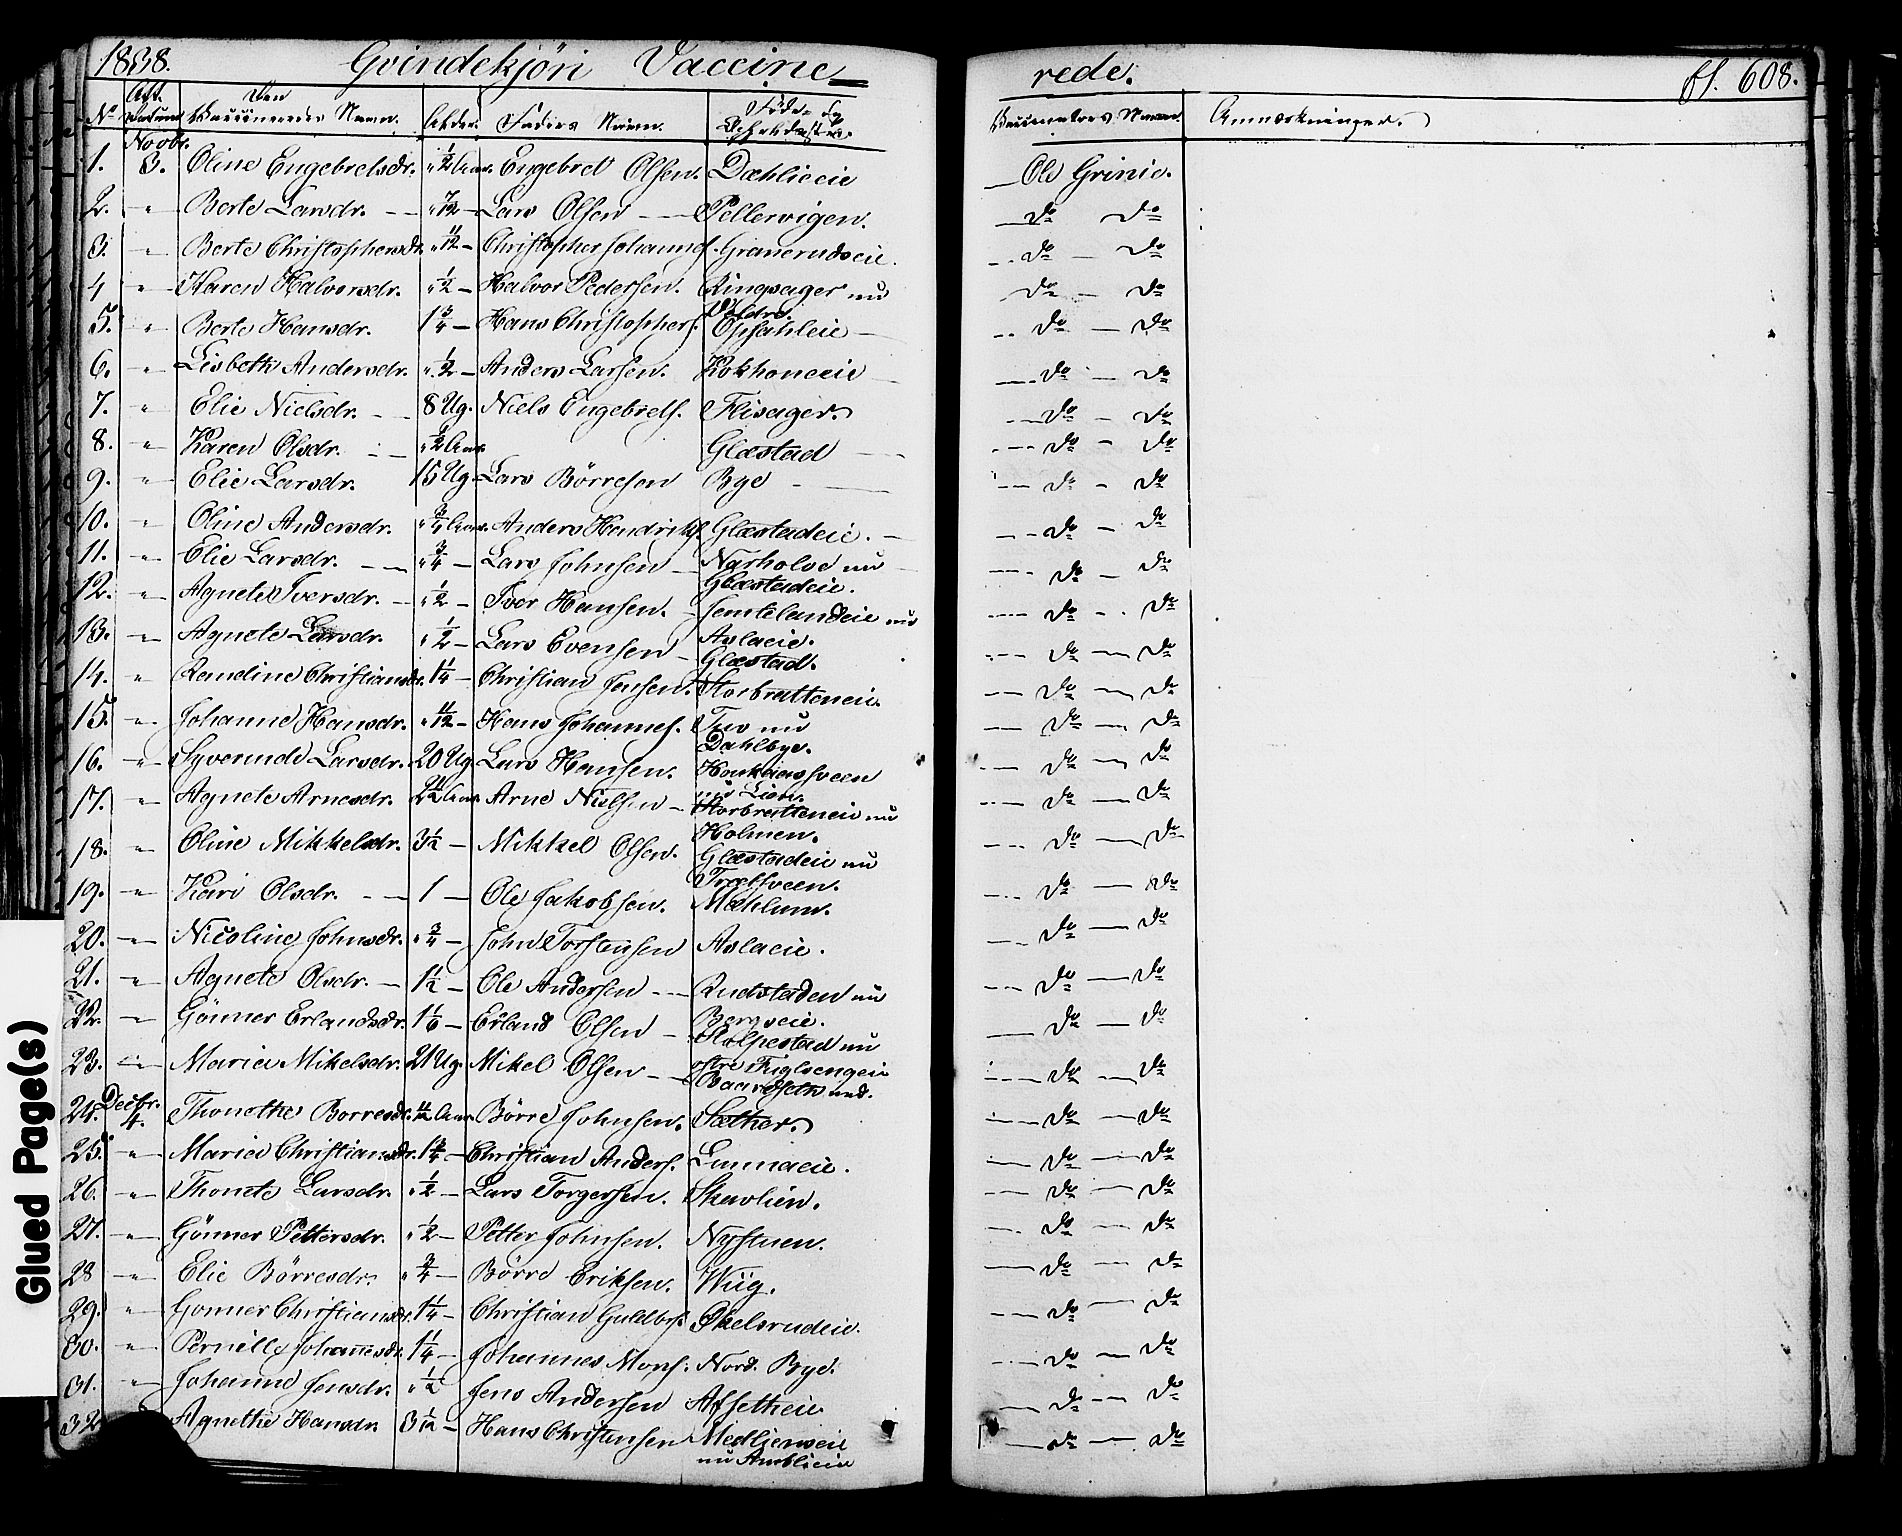 1838. Qvindekjön Vaccine=
rede. fl. 608.
No Att. Datum Den Vaccineredes Navn. Alder. Faders Navn. Föde- og Opholdssted. Vaccinators Navn. Anmærkninger.
Novbr.
1. 3. Oline Engebretsdr. " 1/2 Aar. Engebret Olsen. Dæhlieeie Ole Grinie.
2. " Berte Larsdr. " 7/12 Lars Olsen Pellervigen. Do Do
3. " Berte Christophersdr. " 11/12 Christopher Johannes. Granerudseie. Do Do
4 " Karen Halvorsdr. " 1/2 Halvor Pedersen. Ringsager nu Do Do
5. " Berte Hansdr. 1 3/4 Hans Christophers. Opsahleie Do Do
6. " Lisbeth Andersdr. " 1/2 Anders Larsen. Kokhoneeie Do Do
7. " Elie Nielsdr. 8 Ug. Niels Engebrets. Flisager. Do Do
8. " Karen Olsdr. " 1/2 Aar Glæstad Do Do
9. " Elie Larsdr. 15 Ug. Lars Börresen Bye Do Do
10. " Oline Andersdr. " 3/4 Aar. Anders Hendriks. Glæstadeie. Do Do
11. " Elie Larsdr. " 3/4 Lars Johnsen Narholoe nu Do Do
Glæstadeie.
12. " Agnete Iversdr. " 1/2 Iver Hansen. Jemtelandeie nu Do Do
Aslaeie.
13. " Agnete Larsdr. " 1/2 Lars Evensen Glæstad. Do Do
14. " Randine Christiansdr. 1 1/4 Christian Jensen. Storbratteneie Do Do
15. " Johanne Hansdr. " 11/12 Hans Johannes. Tuv nu Do Do
Dahlbye.
16. " Syverinde Larsdr. 20 Ug. Lars Hansen. Do Do
nu Lien.
17. " Agnete Arnesdr. Aar. Arne Nielsen Storbratteneie nu Do Do
Holmen.
18. " Oline Mikkelsdr. 3 1/2 Mikkel Olsen. Glæstadeie nu Do Do
19. " Kari Olsdr. 1 Ole Jakobsen. Mæhlum. Do Do
20. " Nicoline Johnsdr. " 3/4 John Torstensen Aslaeie. Do Do
21. " Agnete Olsdr. 1 1/2 Ole Andersen Rudstaden nu Do Do
Bergseie.
22. " Gönner Erlandsdr. 1 1/6 Erland Olsen Stolpestad nu Do Do
östre Fuglsengeie
23. " Maria Mikelsdr. 21 Ug. Mikel Olsen Baardseth ned. Do Do
Decbr.
24. 4. Thonethe Borresdr. Aar. Börre Johnsen. Sæther. Do Do
25. " Maria Christiansdr. 1 3/4 Christian Anders. Lunnaeie. Do Do
26. " Thonete Larsdr. " 1/2 Lars Torgersen. Skavlien. Do Do
27. " Gönner Pettersdr. " 1/2 Petter Johnsen. Nystuen. Do Do
28 " Elie Börresdr. " 3/4 Börre Eriksen. Wiig. Do Do
29. " Gonner Christiansdr. 1 1/4 Christian Guldbrs. Økelsrudeie. Do Do
30. " Pernille Johannesdr. 1 1/4 Johannes Mons. Nord. Bye. Do Do
31. " Johanne Jensdr. " 1/2 Jens Andersen Afsetheie Do Do
32 Agnethe Hansdr. 3 1/2 Hans Christensen Medlienseie Do Do
nu
Glued Page(s)